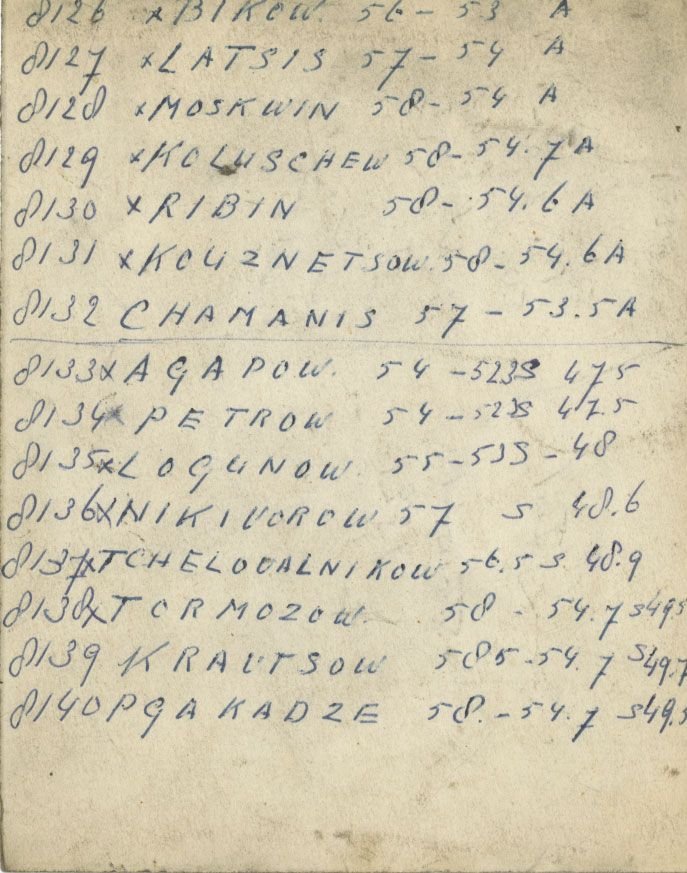 8126 ×BIKOW. 56 - 53 A
8127 ×LATSIS 57 - 54 A
8128 ×MOSKWIN 58 - 54 A
8129 ×KOLUSCHEW 58 - 54.7 A
8130 ×RIBIN 58 - 54.6 A
8131 ×KOUZNETSOW. 58 - 54.6 A
8132 CHAMANIS 57 - 53.5 A
8133×AGAPOW. 54 - 523S 475
8134× PETROW 54 - 523S 47.5
8135×LOGUNOW. 55 - 53S - 48
8136×NIKIVOROW 57 S 48.6
8137×TCHELOVALNIKOW 56.5 S 48.9
8138×TORMOZOW 58 - 54.7 S49.5
8139 KRAVTSOW 585 - 54.7 S49.7
8140 PGAKADZE 58. - 54.7 S49.5